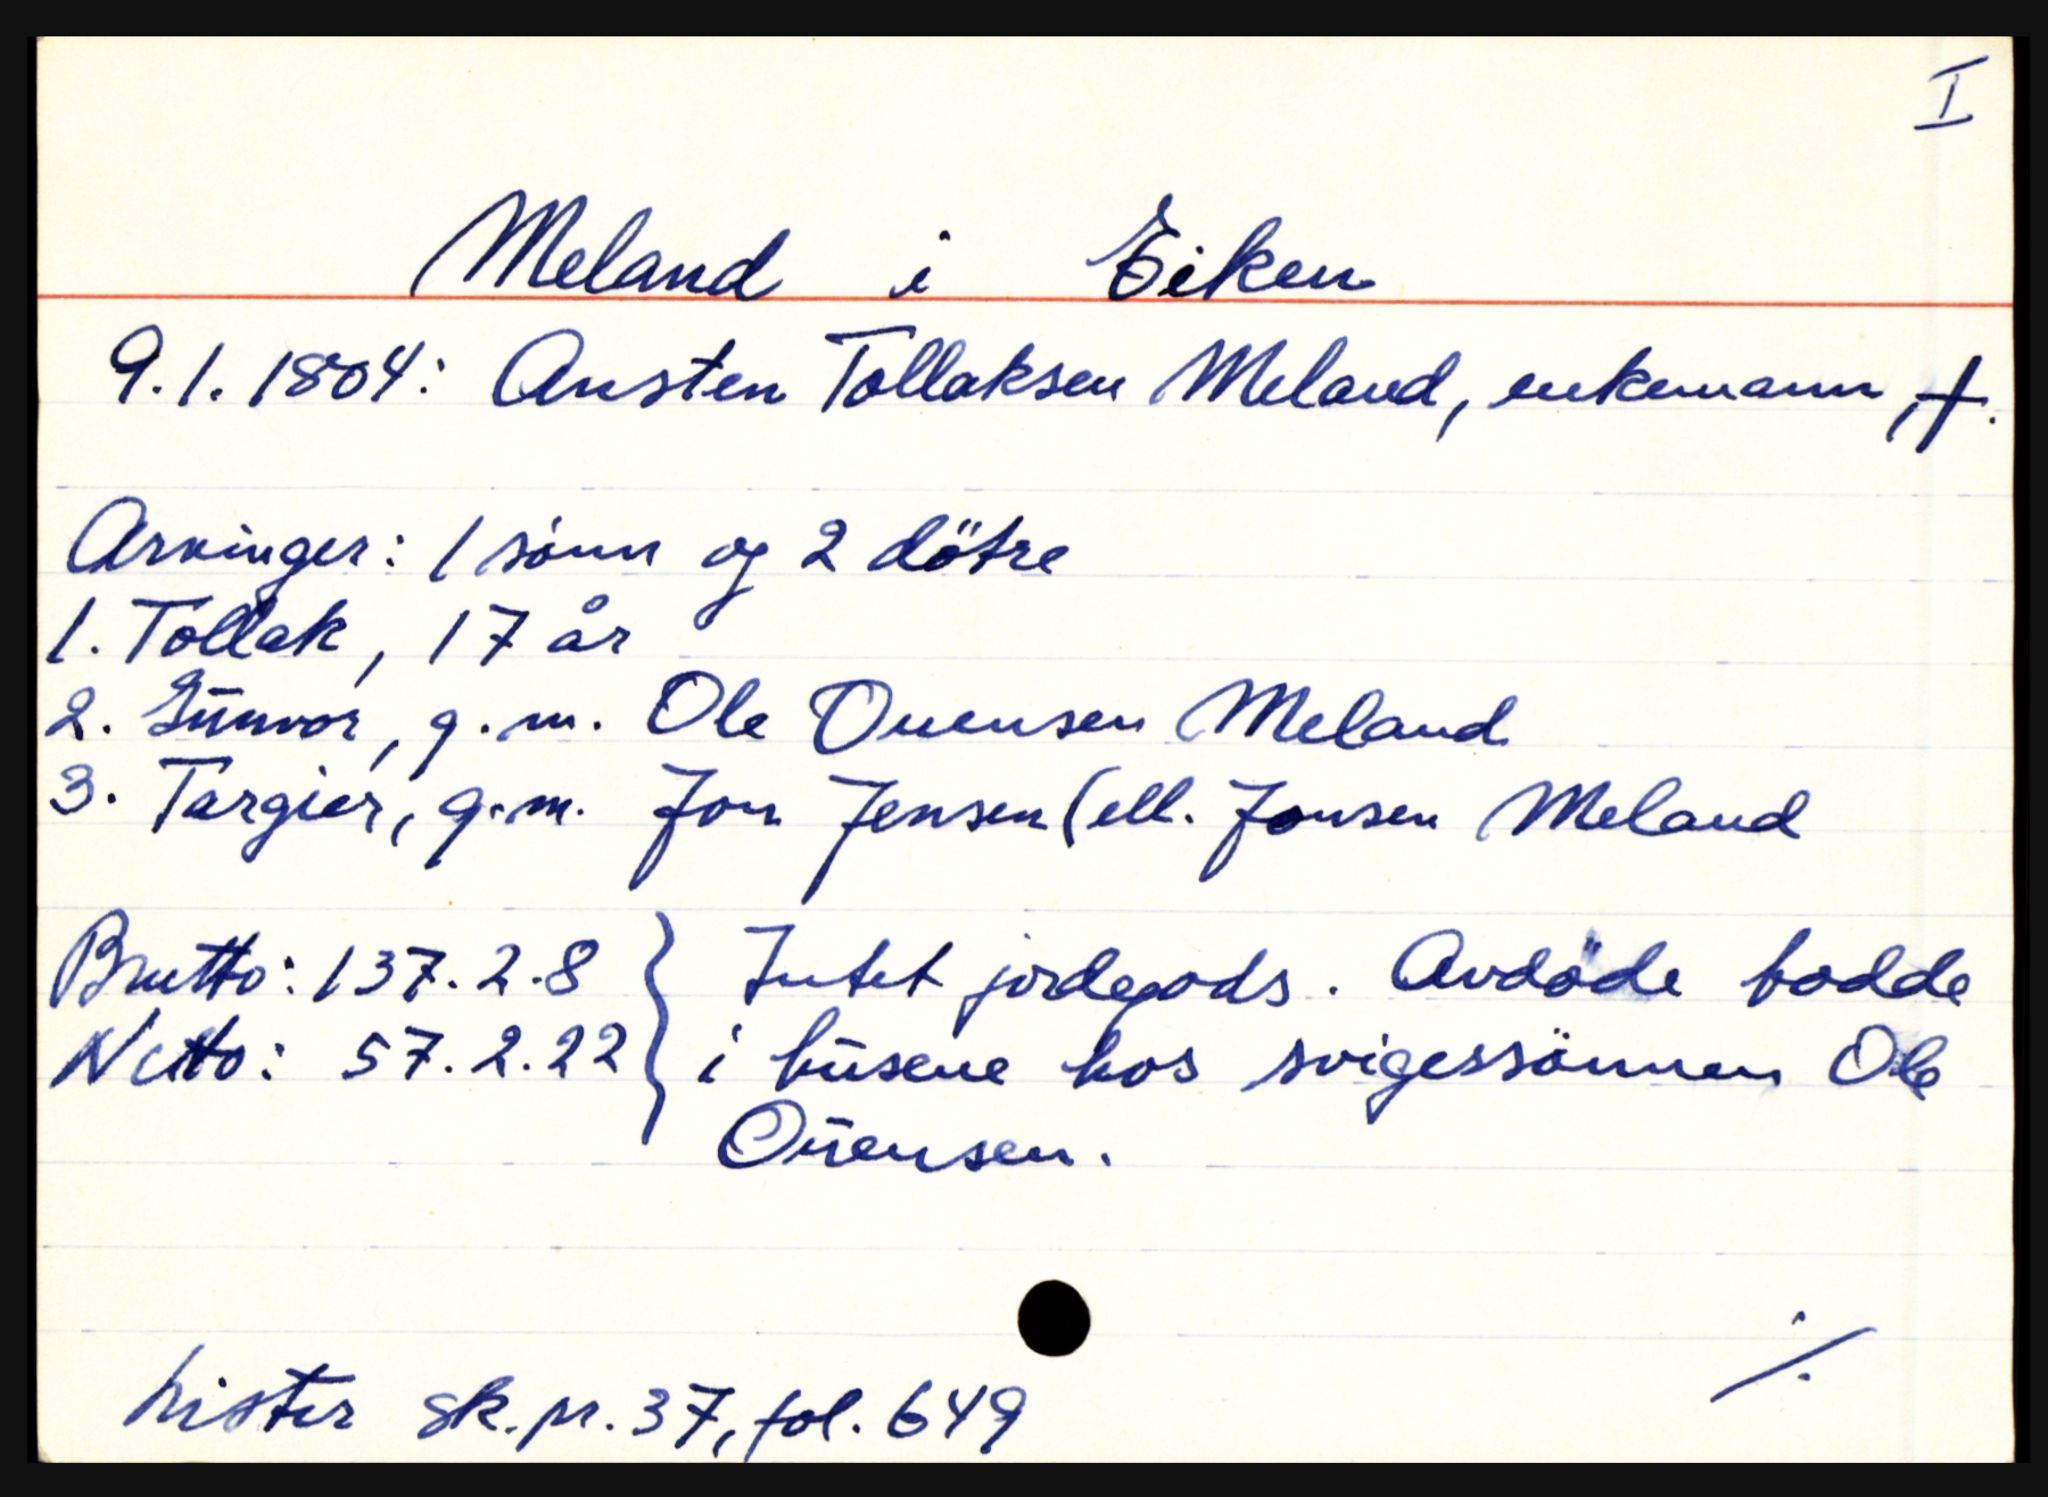 I
Meland i Eiken
9.1.1804: Austen Tollaksen Meland, enkemann, †.
Arvinger: 1 sønn og 2 døtre
1. Tollak, 17 år
2. Gunvor, g.m. Ole Ouensen Meland
3. Targier, g.m. Jon Jensen (ell. Jonsen Meland
Brutto: 137.2.8 } Intet jordegods. Avdøde bodde
Netto: 57.2.22 } i husene hos svigerssønnen Ole
Ouensen.
./.
Lister sk.pr. 37, fol. 649